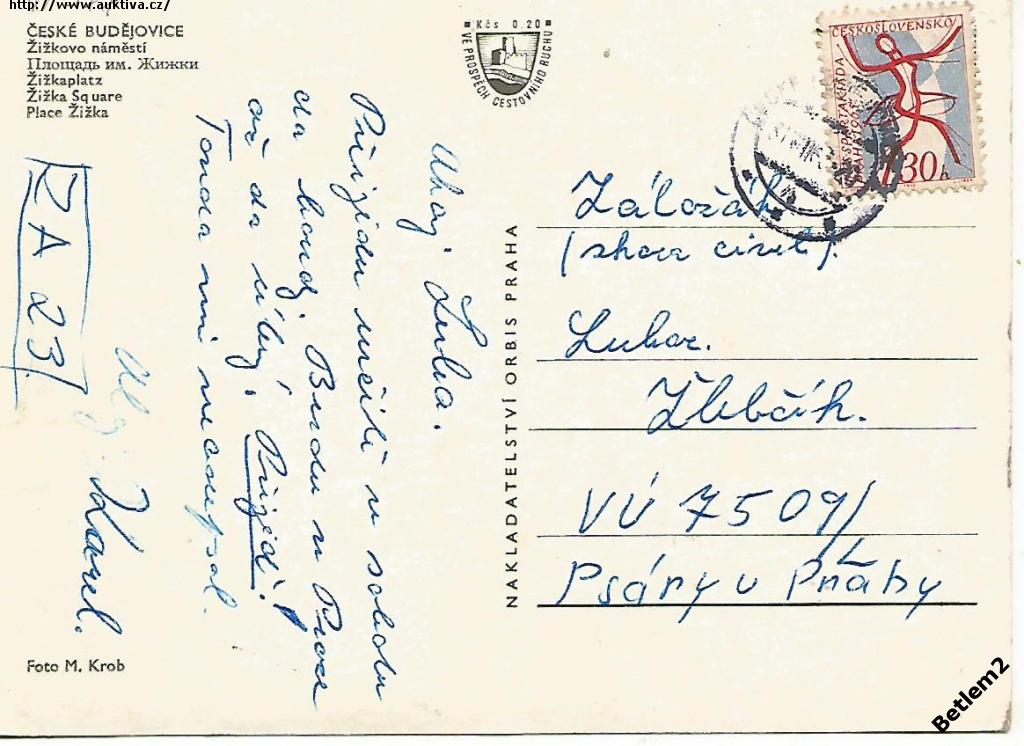 http://www.auktiva.cz/
ČESKÉ BUDĚJOVICE
Žižkovo náměstí
Площадь им. Жижки
Žižkaplatz
Žižka Square
Place Žižka
Kčs 0.20
VE PROSPĚCH CESTOVNÍHO RUCHU
ČESKOSLOVENSKO
SPARTAKIÁDA
30 h
Ahoj. Luba.
Přijedu určitě v sobotu
da Budu u
až da
Přijedi!
Tonda mi nenapsal.
Karel.
RA 23/
NAKLADATELSTVÍ ORBIS PRAHA
Záložák
civil).
Lubor.
Žlebčík.
VÚ 7509/
Psáry u Prahy
Foto M. Krob
Betlem2